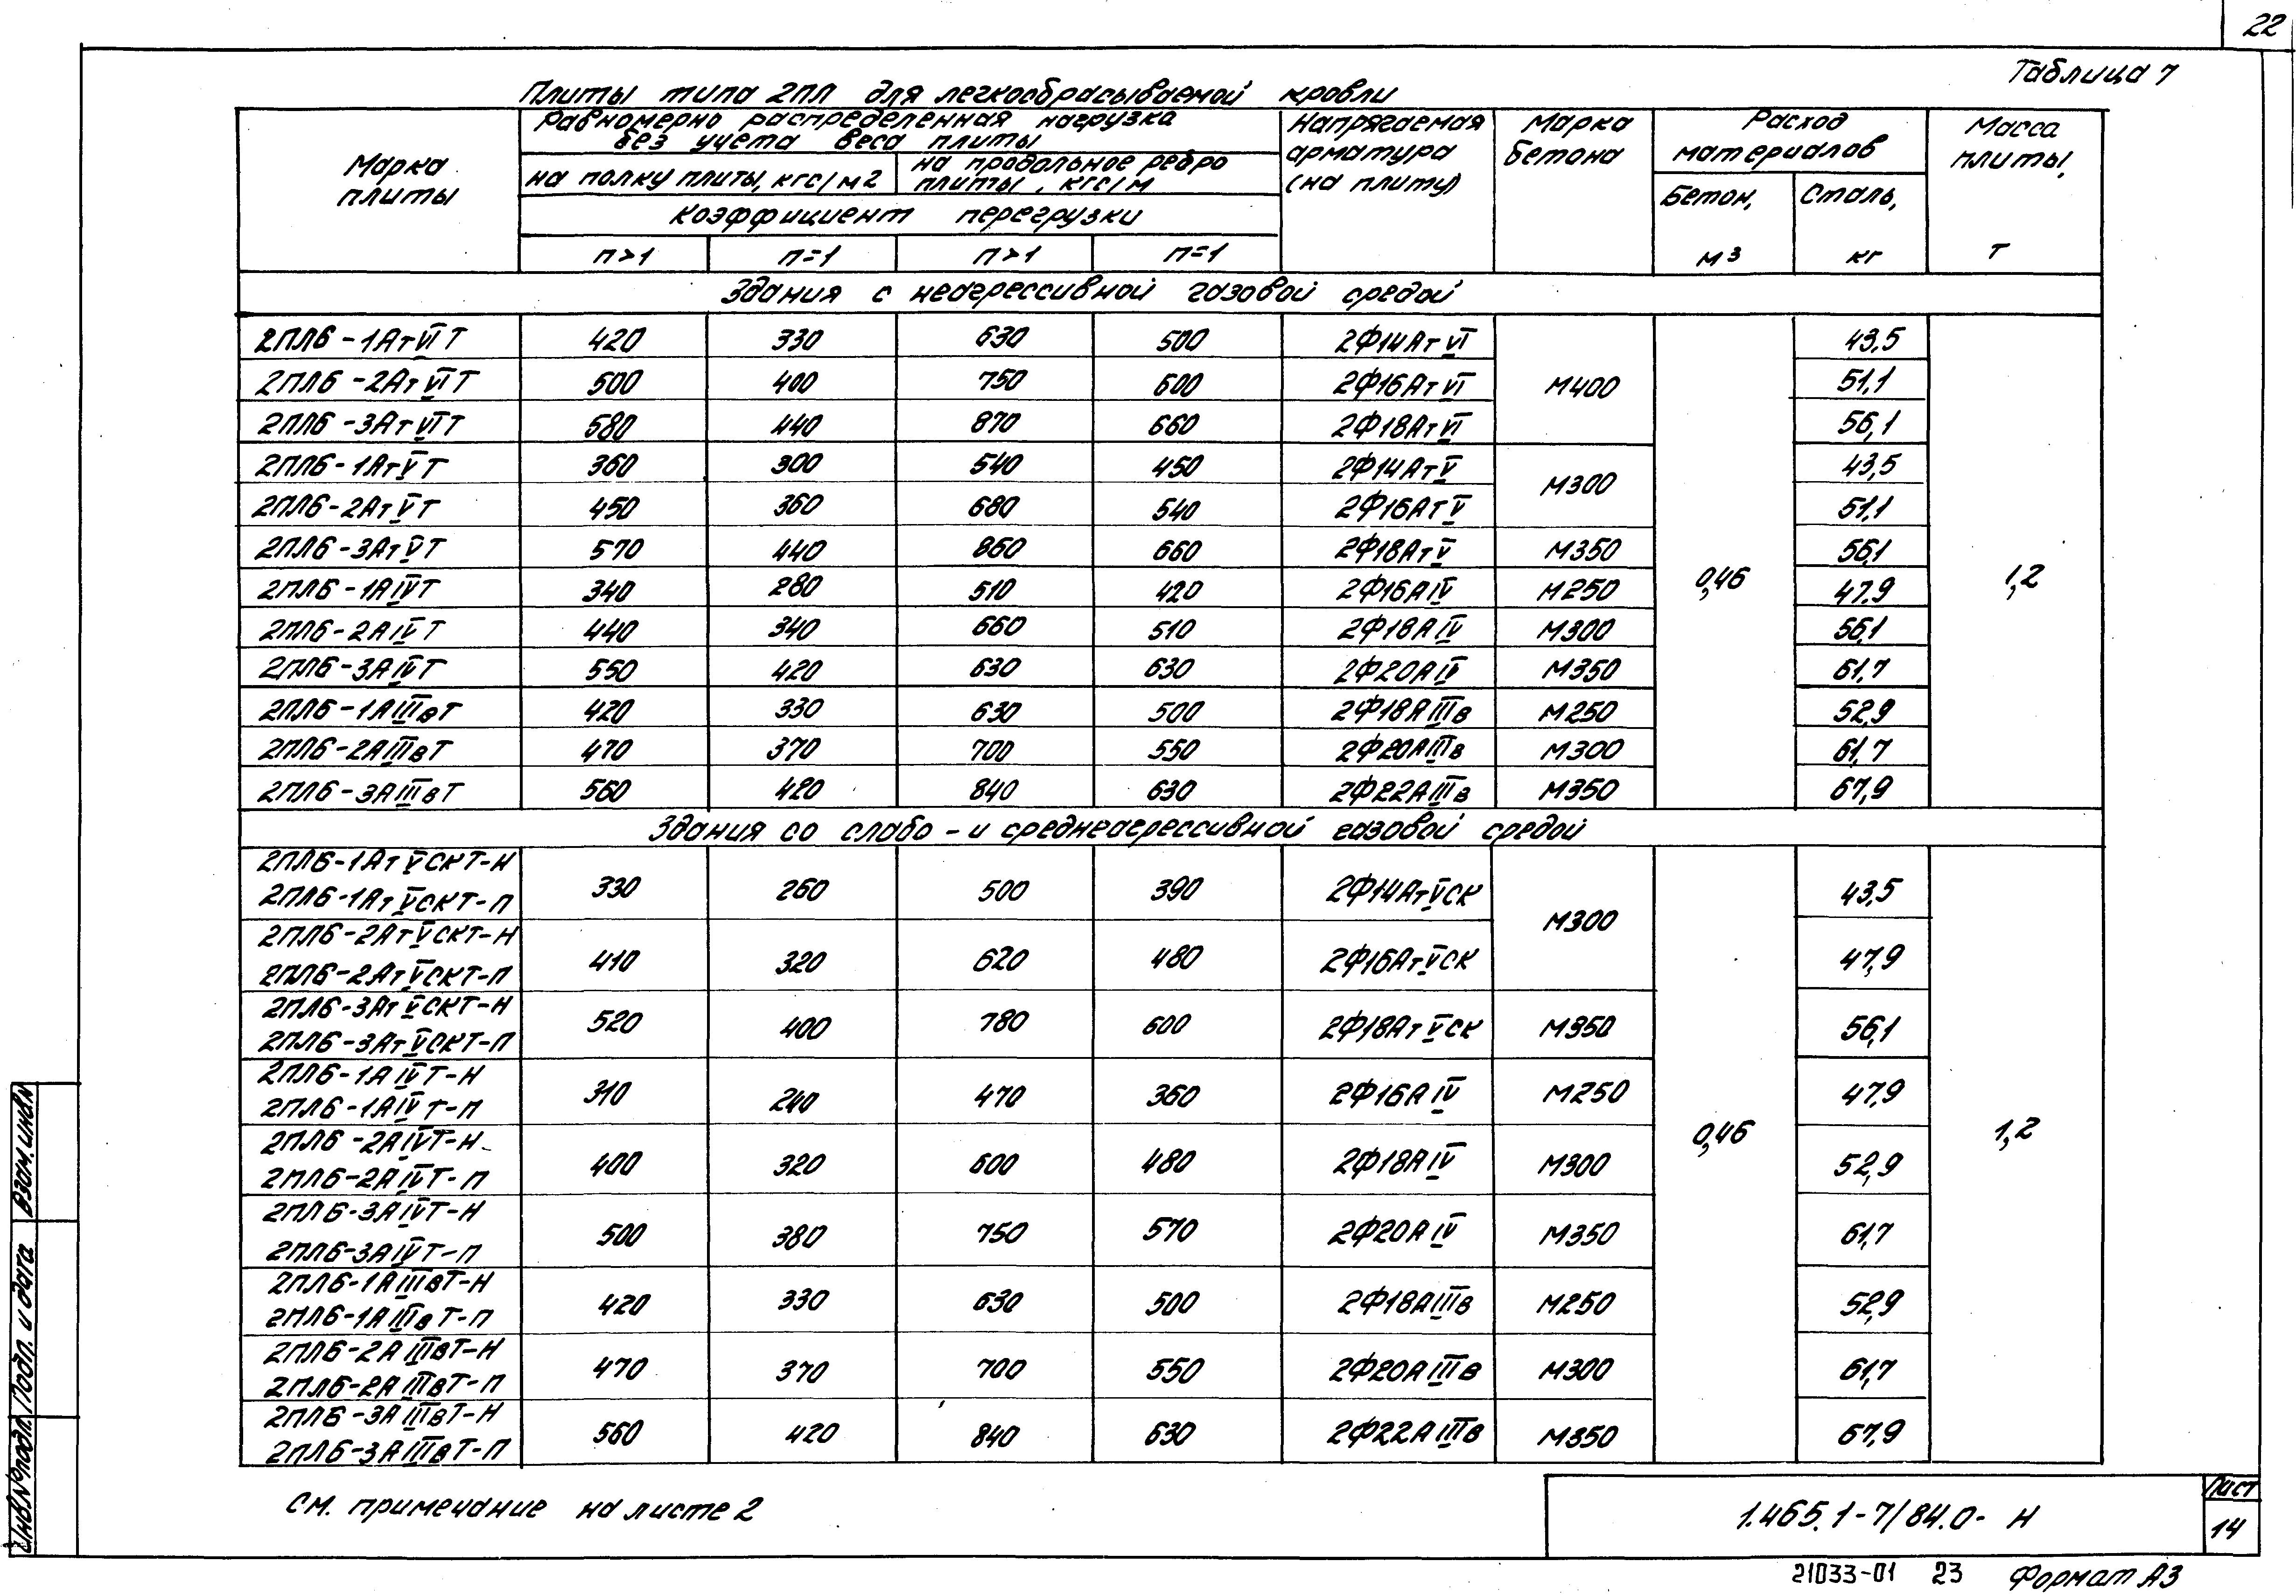 22
Таблица 7
Плиты типа 2ПЛ для легкосбрасываемой кровли
Марка плиты
Равномерно распределенная нагрузка без учета веса плиты
на полку плиты, кгс/м2
на продольное ребро плиты, кгс/м
Коэффициент перегрузки
n>1 n=1 n>1 n=1
Напрягаемая арматура (на плиту)
Марка бетона
Расход материалов
Бетон, м3
Сталь, кг
Масса плиты, т
Здания с неагрессивной газовой средой
2ПЛ6-1АтVIТ 420 330 630 500 2Ф14АтVI М400 0,46 43,5 1,2
2ПЛ6-2АтVIТ 500 400 750 600 2Ф16АтVI 51,1
2ПЛ6-3АтVIТ 580 440 870 660 2Ф18АтVI 56,1
2ПЛ6-1АтVТ 360 300 540 450 2Ф14АтV М300 43,5
2ПЛ6-2АтVТ 450 360 680 540 2Ф16АтV 51,1
2ПЛ6-3АтVТ 570 440 860 660 2Ф18АтV М350 56,1
2ПЛ6-1АIVТ 340 280 510 420 2Ф16АIV М250 47,9
2ПЛ6-2АIVТ 440 340 660 510 2Ф18АIV М300 56,1
2ПЛ6-3АIVТ 550 420 630 630 2Ф20АIV М350 61,7
2ПЛ6-1АIIIвТ 420 330 630 500 2Ф18АIIIв М250 52,9
2ПЛ6-2АIIIвТ 470 370 700 550 2Ф20АIIIв М300 61,7
2ПЛ6-3АIIIвТ 560 420 840 630 2Ф22АIIIв М350 67,9
Здания со слабо- и среднеагрессивной газовой средой
2ПЛ6-1АтVСКТ-Н
2ПЛ6-1АтVСКТ-П 330 260 500 390 2Ф14АтVСК М300 0,46 43,5 1,2
2ПЛ6-2АтVСКТ-Н
2ПЛ6-2АтVСКТ-П 410 320 620 480 2Ф16АтVСК 47,9
2ПЛ6-3АтVСКТ-Н
2ПЛ6-3АтVСКТ-П 520 400 780 600 2Ф18АтVСК М350 56,1
2ПЛ6-1АIVТ-Н
2ПЛ6-1АIVТ-П 310 240 470 360 2Ф16АIV М250 47,9
2ПЛ6-2АIVТ-Н
2ПЛ6-2АIVТ-П 400 320 600 480 2Ф18АIV М300 52,9
2ПЛ6-3АIVТ-Н
2ПЛ6-3АIVТ-П 500 380 750 570 2Ф20АIV М350 61,7
2ПЛ6-1АIIIвТ-Н
2ПЛ6-1АIIIвТ-П 420 330 630 500 2Ф18АIIIв М250 52,9
2ПЛ6-2АIIIвТ-Н
2ПЛ6-2АIIIвТ-П 470 370 700 550 2Ф20АIIIв М300 61,7
2ПЛ6-3АIIIвТ-Н
2ПЛ6-3АIIIвТ-П 560 420 840 630 2Ф22АIIIв М350 67,9
См. примечание на листе 2
1.465.1-7/84.0- Н
Лист
14
21033-01 23 Формат А3
Инв.№подл. Подп. и дата Взам.инв№